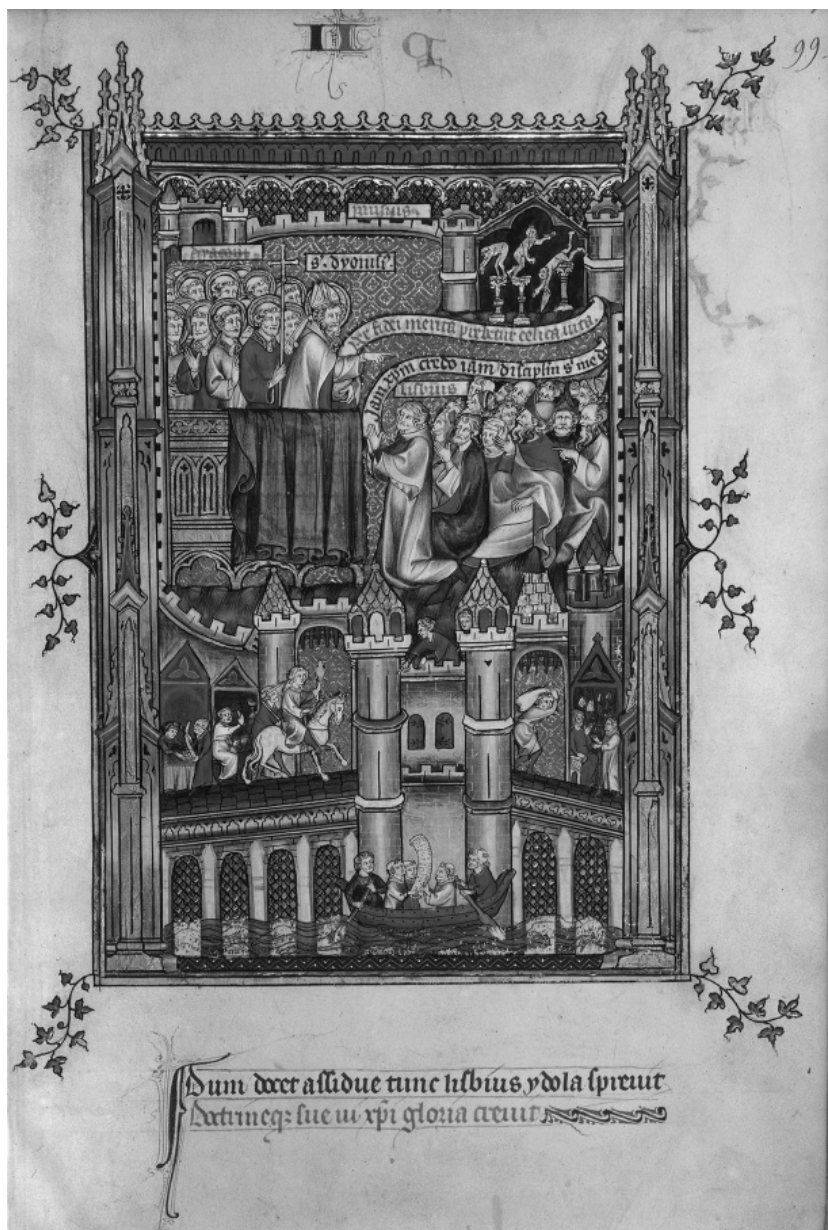 99.
parisius
s. dyonisi.
per fidei merita prebetur celica vita.
Jam xpm credo iam disciplin s. me d
lisbius
Dum docet assidue tunc lisbius ydola spreuit
Doctrineq: sue xpi gloria creuit